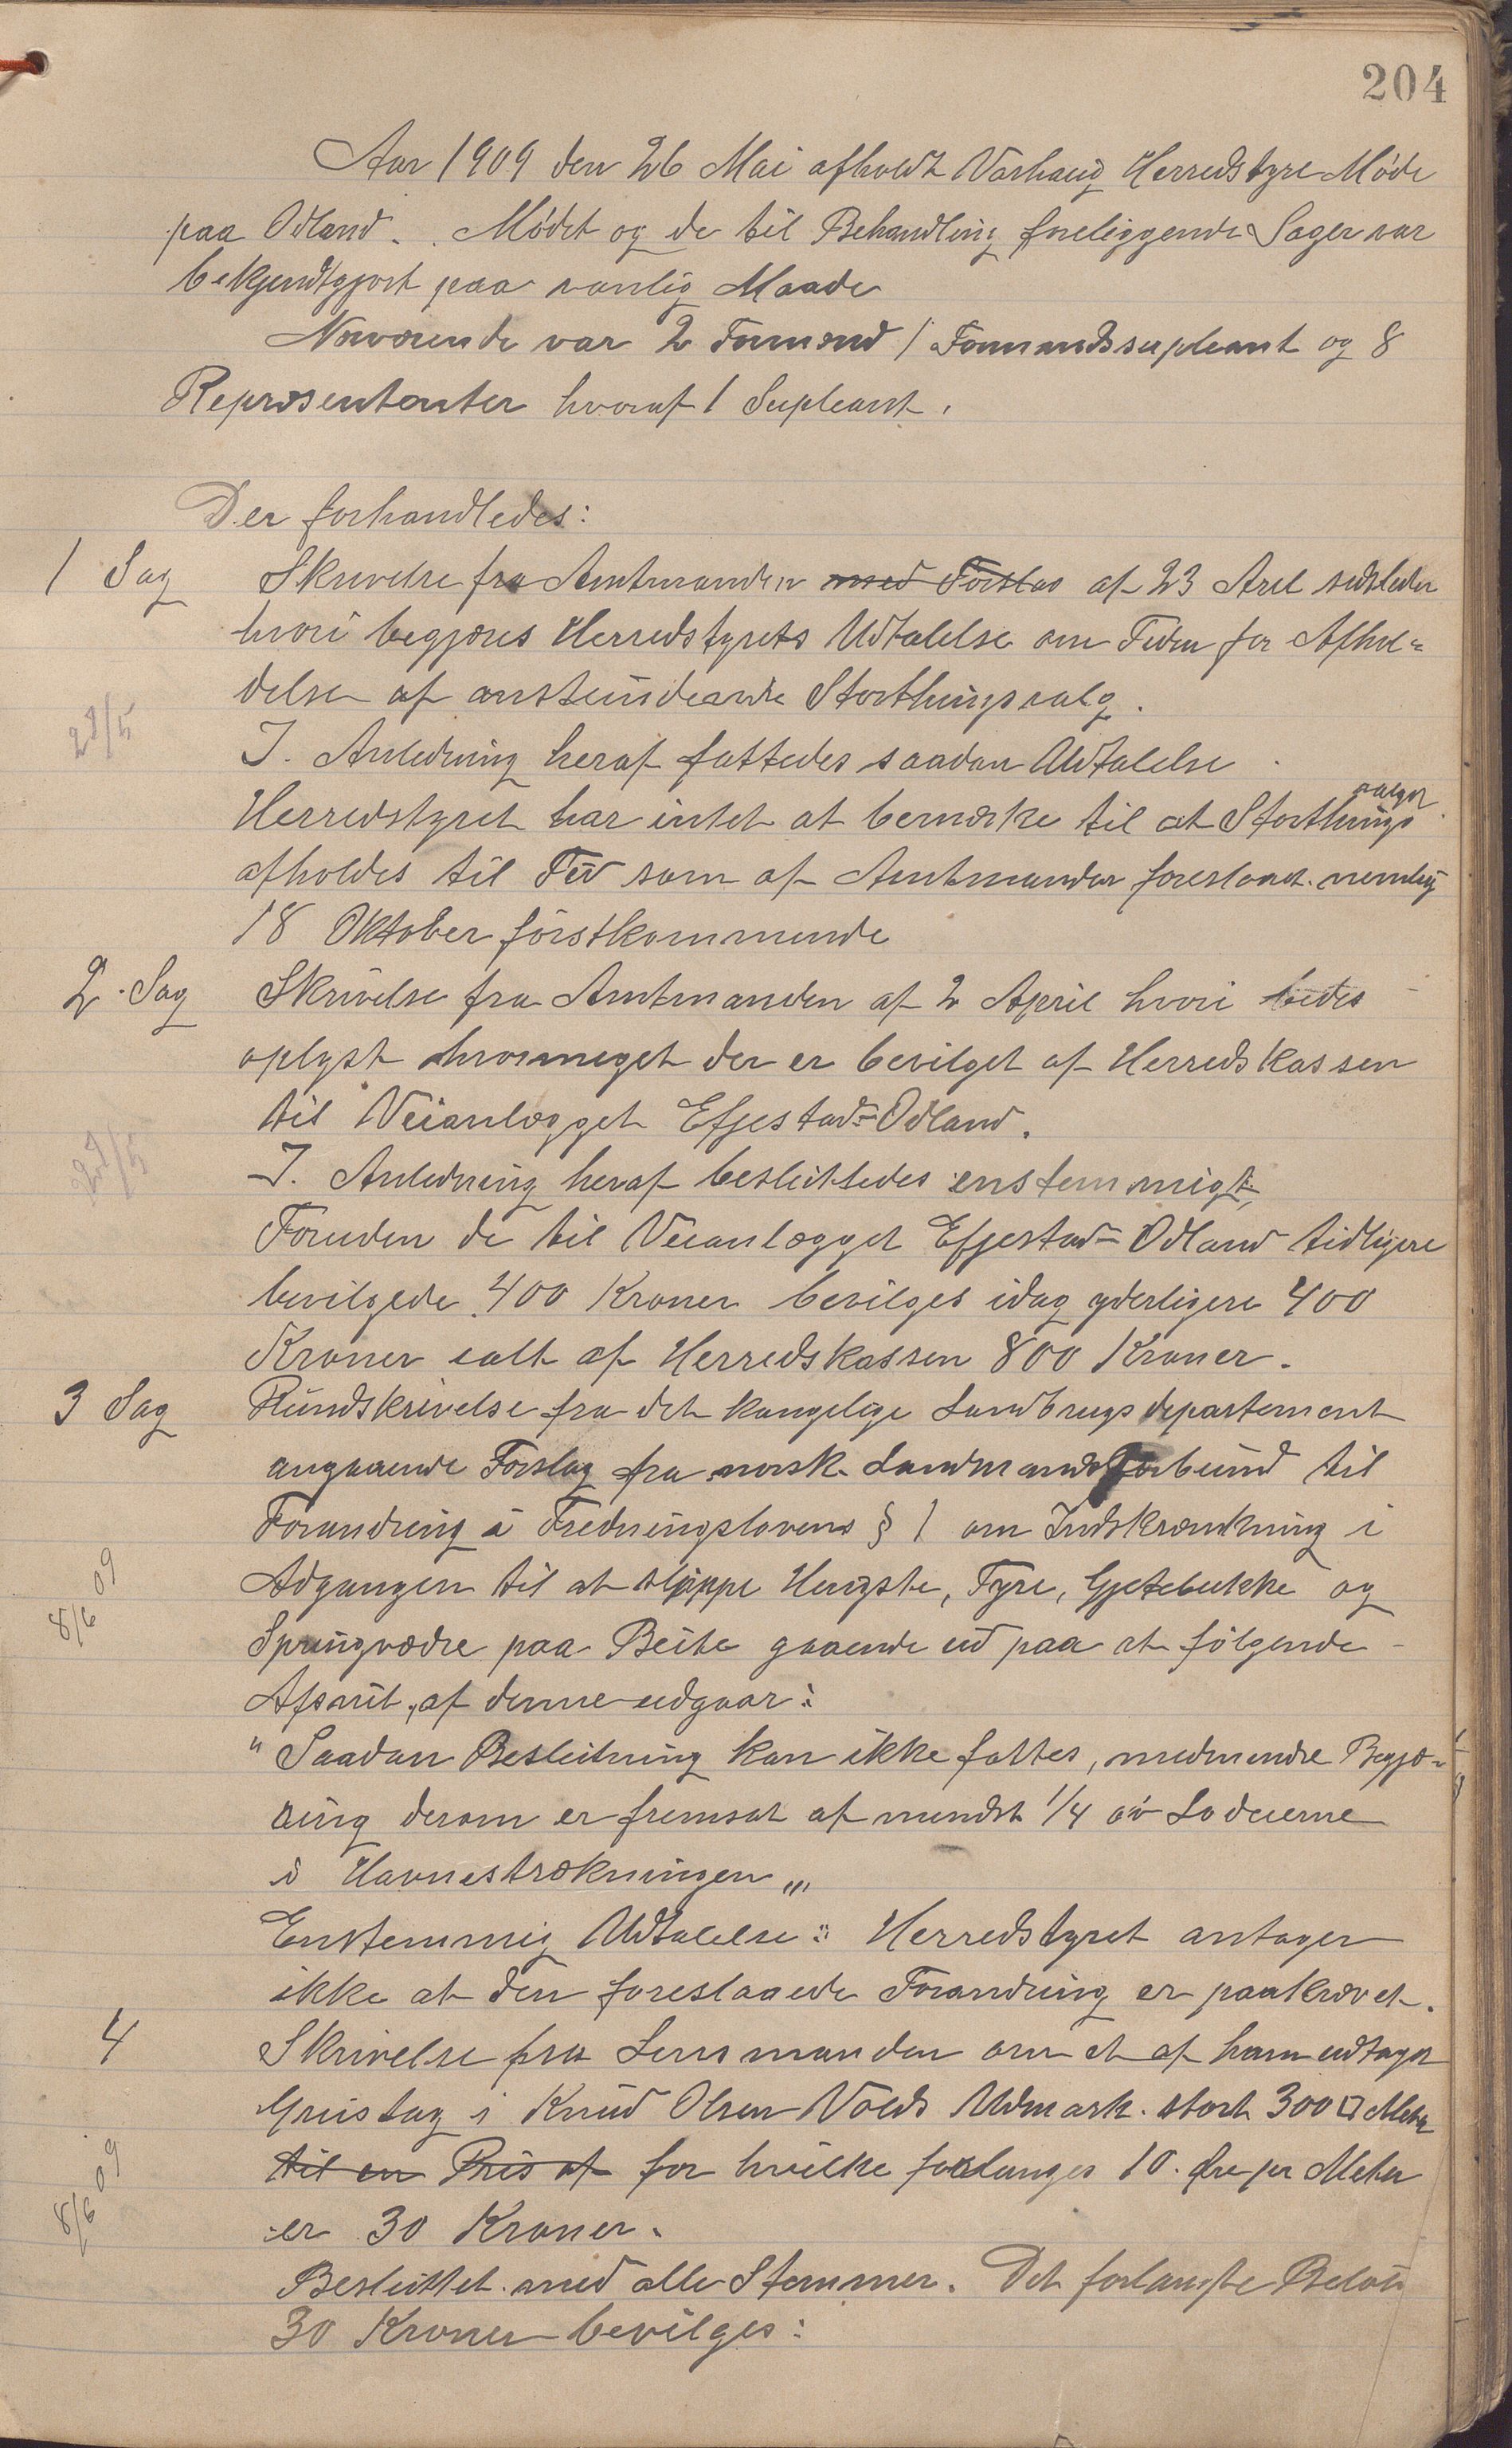 204
Aar 1909 den 26 Mai afholdt Varhaug Herredstyre Møde
paa Odland. Mødet og de til Behandling foreliggende Sager var
bekjendtgjort paa vanlig Maade
Nærværende var 2 Formænd 1 Formandssupleant og 8
Repræsentanter hvoraf 1 Supleant.
Der forhandledes:
1 Sag Skrivelse fra Amtmanden med Forslag af 23 Aril sidstleden
hvori begjæres Herredstyrets Udtalelse om Tiden for Afhol-
delse af anstundende Storthingsvalg.
29/5
I. Anledning heraf fattedes saadan Udtalelse
Herredstyret har intet at bemærke til at Storthings valget
afholdes til Tid som af Amtmanden foreslaaet nemlig
18 Oktober førstkommende
2. Sag Skrivelse fra Amtmanden af 2 April hvori bedes
oplyst hvormeget der er bevilget af Herredskassen
til Veianlægget Efjestad-Odland.
29/5
I. Anledning heraf besluttedes enstemmigt,
Foruden de til Veianlægget Efjestad-Odland tidligere
bevilgede 400 Kroner bevilges idag yderligere 400
Kroner ialt af Herredskassen 800 Kroner.
3 Sag Rundskrivelse fra det kongelige Landbrugsdepartement
angaaende Forslag fra norsk Landmandsforbund til
Forandring i Fredningslovens § 1 om Indskrænkning i
Adgangen til at slippe Hingste, Tyre, Gjetebukke og
8/6 09
Springvædre paa Beite gaaende ud paa at følgende
Afsnit af denne udgaar:
"Saadan Beslutning kan ikke fattes, medmindre Begjæ-
ring derom er fremsat af mindst 1/4 av Lodeierne
i Havnestrækningen"
Enstemmig Udtalelse: Herredstyret antager
ikke at den foreslaaede Forandring er paakrævet.
4 Skrivelse fra Lensmanden om et af ham udtaget
Grustag i Knud Olsen Volds Udmark stort 300 □ Meter
til en Pris af for hvilke forlanges 10 Øre pr Meter
8/6 09
er 30 Kroner.
Besluttet med alle Stemmer. Det forlangte Beløb
30 Kroner bevilges: